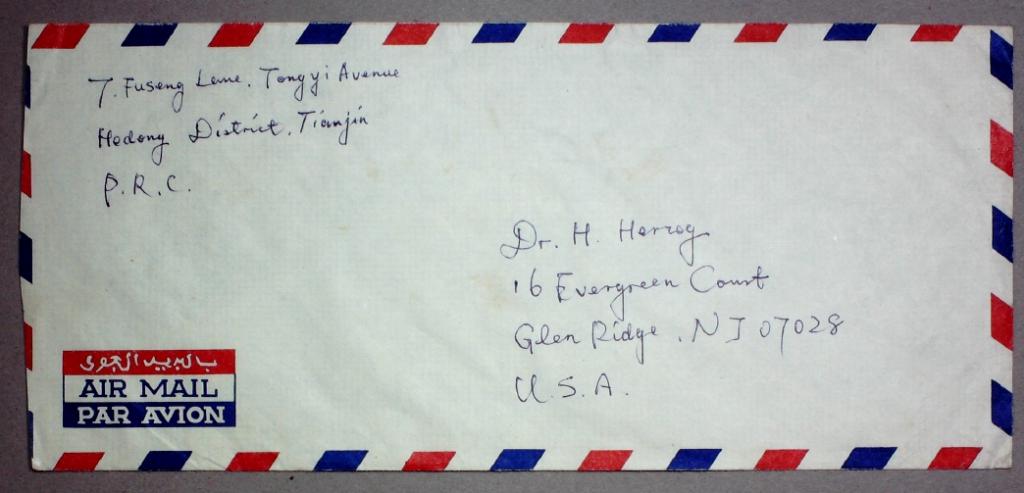 7. Fuseng Lane, Tongyi Avenue
Hedong District, Tianjin
P.R.C.
Dr. H. Herzog
16 Evergreen Court
Glen Ridge, NJ 07028
U.S.A.
بالبريد الجوى
AIR MAIL
PAR AVION